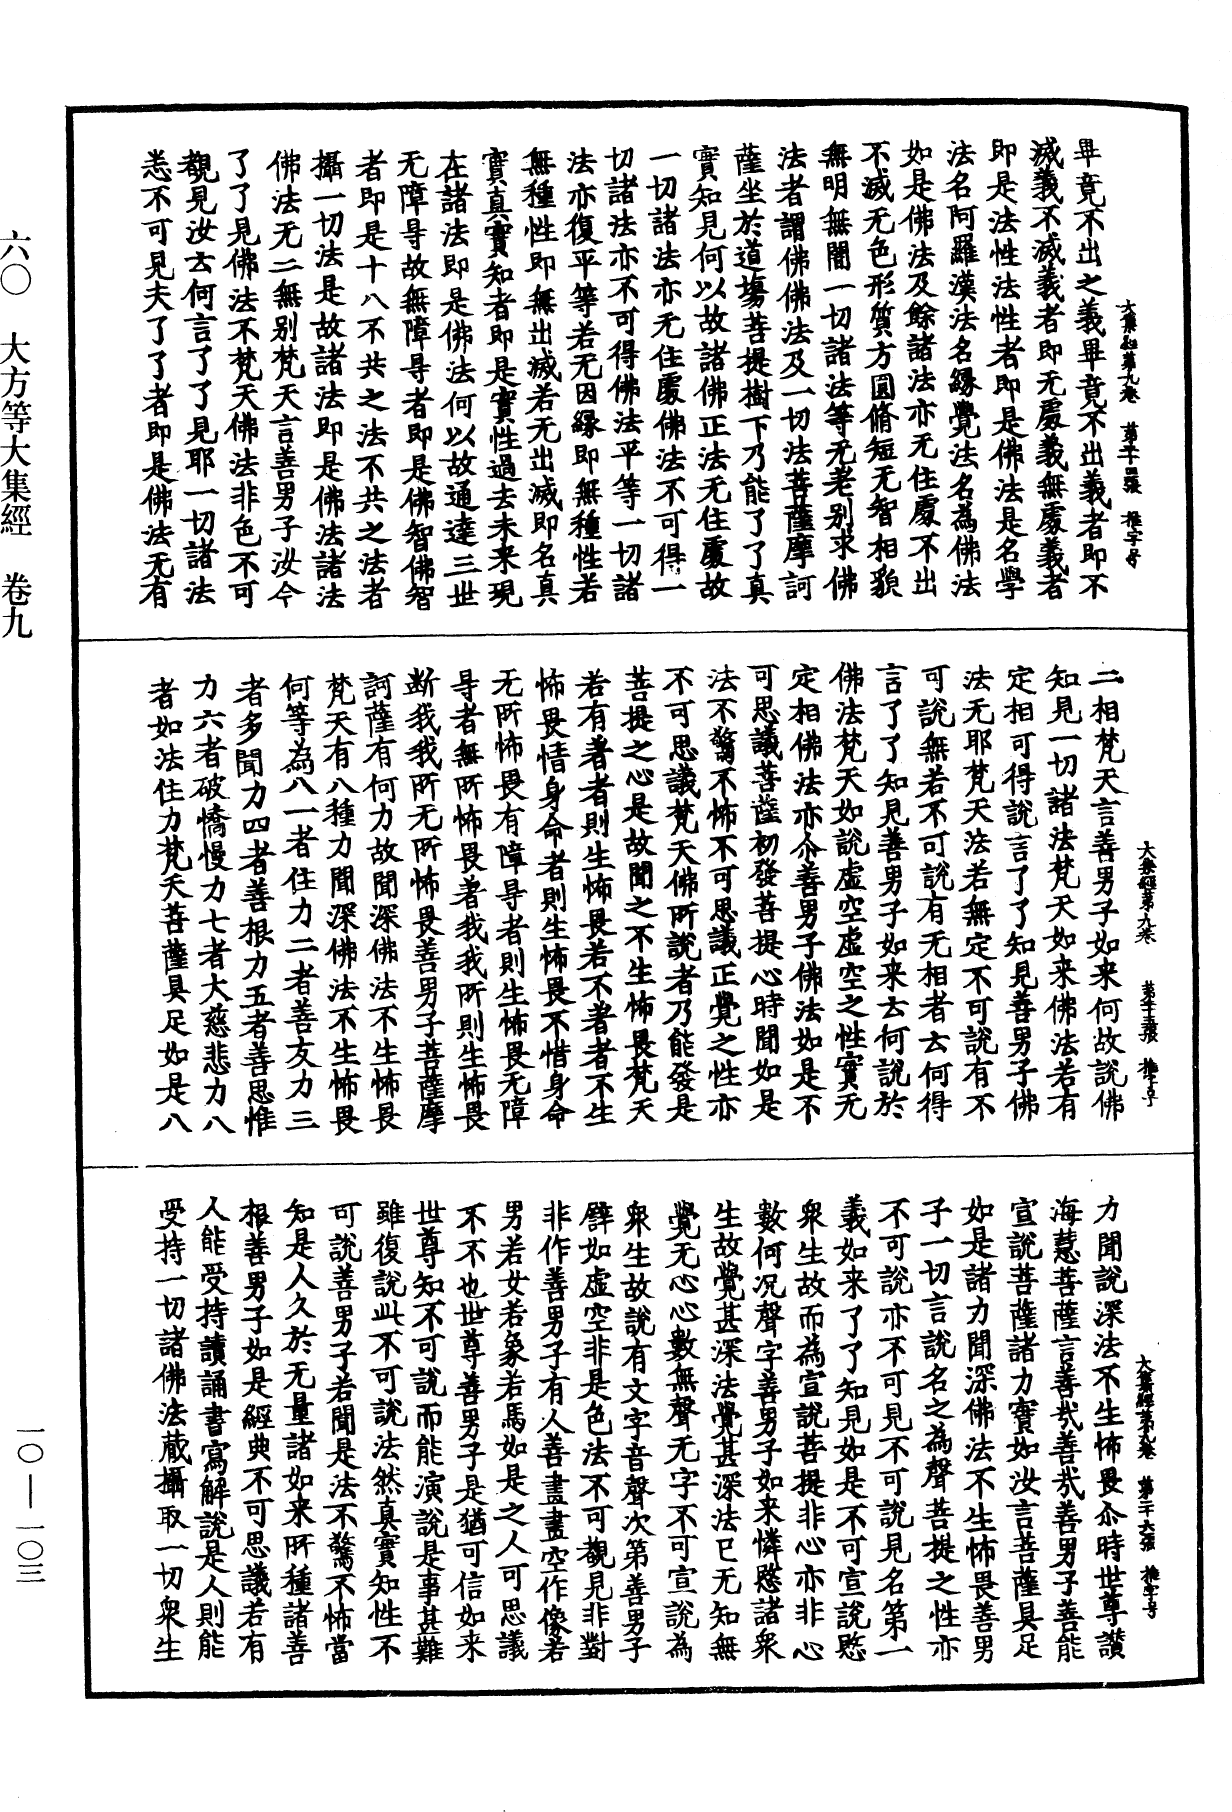 大集經第九卷　第二十四張　推字号
畢竟不出之義畢竟不出義者即不
滅義不滅義者即无處義義無處義者
即是法性法性者即是佛法是名學
法名阿羅漢法名緣覺法名為佛法
如是佛法及餘諸法亦无住處不出
不滅无色形質方圓脩短无智相貌
無明無闇一切諸法等无老別求佛
法者謂佛佛法及一切法菩薩摩訶
薩坐於道塲菩提樹下乃能了了真
實知見何以故諸佛正法无住處故
一切諸法亦无住處佛法不可得一
切諸法亦不可得佛法平等一切諸
法亦復平等若无因緣即無種性若
無種性即無出滅若无出滅即名真
實真實知者即是實性過去未来現
在諸法即是佛法何以故通達三世
无障㝵故無障㝵者即是佛智佛智
者即是十八不共之法不共之法者
攝一切法是故諸法即是佛法諸法
佛法无二無别梵天言善男子汝今
了了見佛法不梵天佛法非色不可
覩見汝去何言了了見耶一切諸法
悉不可見夫了了者即是佛法无有
大集經第九卷　第二十五張　推字号
二相梵天言善男子如来何故說佛
知見一切諸法梵天如来佛法若有
定相可得說言了了知見善男子佛
法无耶梵天法若無定不可說有不
可說無若不可說有无相者去何得
言了了知見善男子如来去何說於
佛法梵天如說虚空虚空之性實无
定相佛法亦尒善男子佛法如是不
可思議菩薩初發菩提心時聞如是
法不驚不怖不可思議正覺之性亦
不可思議梵天佛所說者乃能發是
菩提之心是故聞之不生怖畏梵天
若有著者則生怖畏若不著者不生
怖畏惜身命者則生怖畏不惜身命
无所怖畏有障㝵者則生怖畏无障
㝵者無所怖畏著我我所則生怖畏
断我我所无所怖畏善男子菩薩摩
訶薩有何力故聞深佛法不生怖畏
梵天有八種力聞深佛法不生怖畏
何等為八一者住力二者善友力三
者多聞力四者善根力五者善思惟
力六者破憍慢力七者大慈悲力八
者如法住力梵天菩薩具足如是八
大集經第九卷　第二十六張　推字号
力聞說深法不生怖畏尒時世尊讃
海慧菩薩言善哉善哉善男子善能
宣說菩薩諸力實如汝言菩薩具足
如是諸力聞深佛法不生怖畏善男
子一切言說名之為聲菩提之性亦
不可說亦不可見不可說見名第一
義如来了了知見如是不可宣說愍
衆生故而為宣說菩提非心亦非心
數何况聲字善男子如来憐愍諸衆
生故覺甚深法覺甚深法已无知無
覺无心心數無聲无字不可宣說為
衆生故說有文字音聲次第善男子
譬如虚空非是色法不可覩見非對
非作善男子有人善畫畫空作像若
男若女若象若馬如是之人可思議
不不也世尊善男子是猶可信如来
世尊知不可說而能演說是事甚難
雖復說此不可說法然真實知性不
可說善男子若聞是法不驚不怖當
知是人久於无量諸如来所種諸善
根善男子如是經典不可思議若有
人能受持讀誦書寫解說是人則能
受持一切諸佛法藏攝取一切衆生
六〇　大方等大集經　卷九
一〇—一〇三